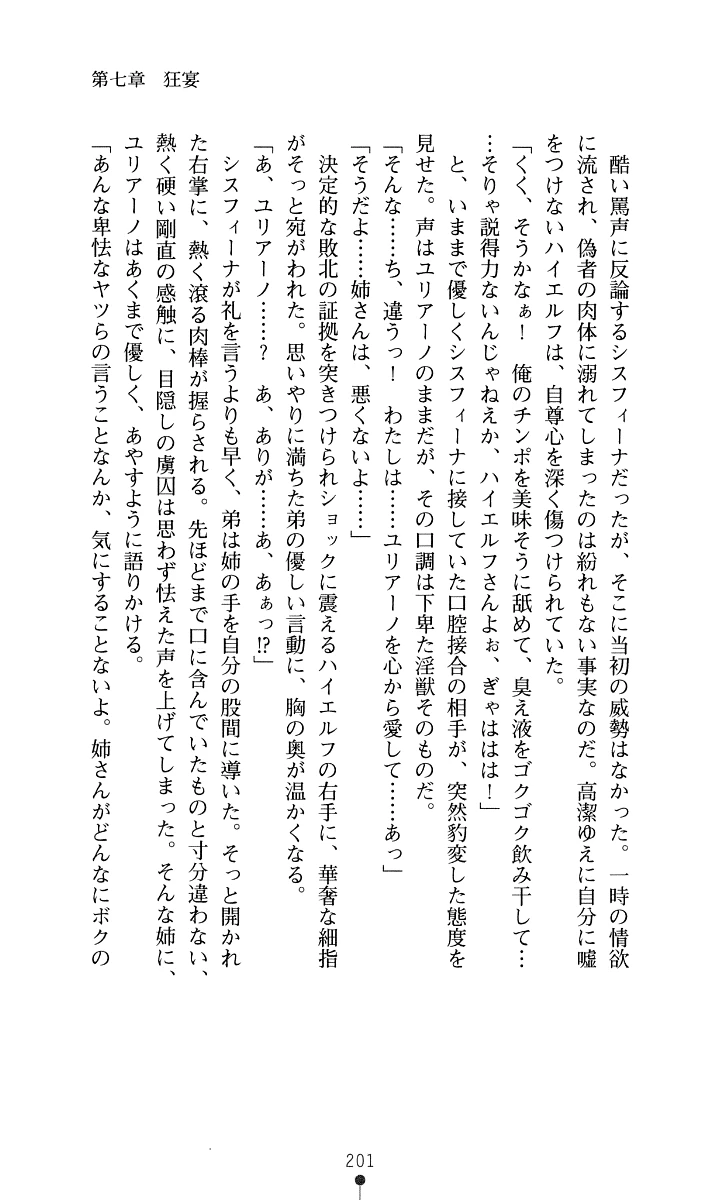 第七章　狂宴
　酷い罵声に反論するシスフィーナだったが、そこに当初の威勢はなかった。一時の情欲
に流され、偽者の肉体に溺れてしまったのは紛れもない事実なのだ。高潔ゆえに自分に嘘
をつけないハイエルフは、自尊心を深く傷つけられていた。
「くく、そうかなぁ！　俺のチンポを美味そうに舐めて、臭え液をゴクゴク飲み干して…
…そりゃ説得力ないんじゃねえか、ハイエルフさんよぉ、ぎゃははは！」
　と、いままで優しくシスフィーナに接していた口腔接合の相手が、突然豹変した態度を
見せた。声はユリアーノのままだが、その口調は下卑た淫獣そのものだ。
「そんな……ち、違うっ！　わたしは……ユリアーノを心から愛して……あっ」
「そうだよ……姉さんは、悪くないよ……」
　決定的な敗北の証拠を突きつけられショックに震えるハイエルフの右手に、華奢な細指
がそっと宛がわれた。思いやりに満ちた弟の優しい言動に、胸の奥が温かくなる。
「あ、ユリアーノ……？　あ、ありが……あ、あぁっ!?」
　シスフィーナが礼を言うよりも早く、弟は姉の手を自分の股間に導いた。そっと開かれ
た右掌に、熱く滾る肉棒が握らされる。先ほどまで口に含んでいたものと寸分違わない、
熱く硬い剛直の感触に、目隠しの虜囚は思わず怯えた声を上げてしまった。そんな姉に、
ユリアーノはあくまで優しく、あやすように語りかける。
「あんな卑怯なヤツらの言うことなんか、気にすることないよ。姉さんがどんなにボクの
201